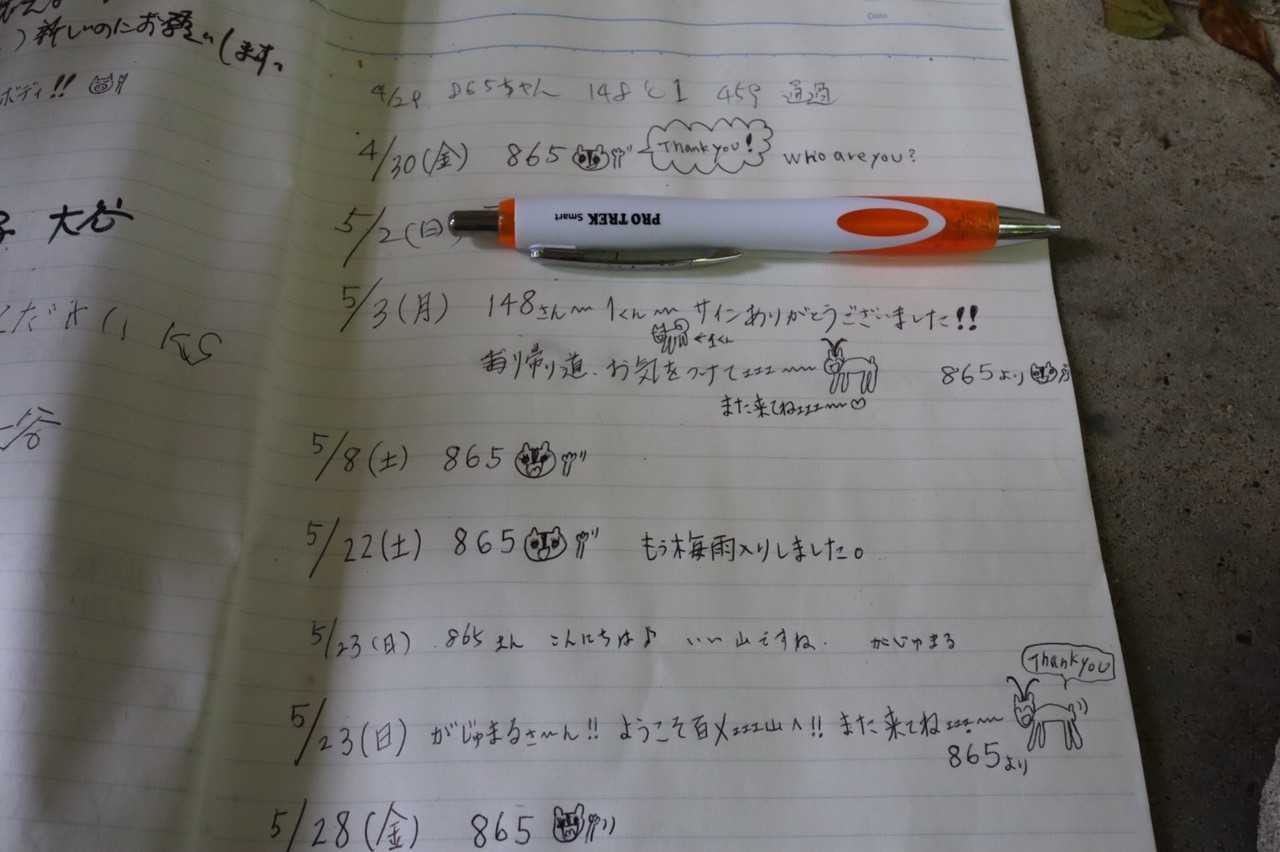 新しいのにお願いします。
ボディ!!
大谷
Date
4/29 865ちゃん 148と1 459 通過
4/30(金) 865 Thank you! who are you?
5/2(日)
PRO TREK Smart
5/3(月) 148さん〜 1くん〜 サインありがとうございました!!
←1くん
帰り道、お気をつけてェェェ〜
865より
また来てねェェェ〜♡
5/8(土) 865
5/22(土) 865 もう梅雨入りしました。
5/23(日) 865さん こんにちは♪ いい山ですね. がじゅまる
Thank you
5/23(日) がじゅまるさ〜ん!! ようこそ百メェェェ山へ!! また来てねェェェ〜
865より
5/28(金) 865